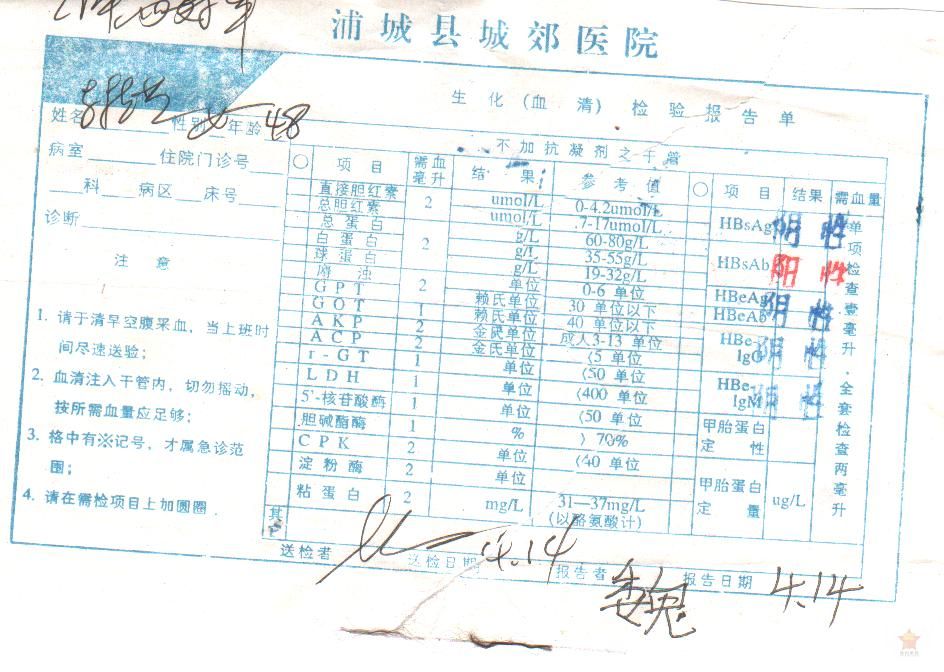 浦城县城郊医院
生化(血清)检验报告单
姓名 性别 女 年龄 48
病室 住院门诊号
科 病区 床号
诊断
注意
1. 请于清早空腹采血，当上班时
间尽速送验；
2. 血清注入干管内，切勿摇动，
按所需血量应足够；
3. 格中有※记号，才属急诊范
围；
4. 请在需检项目上加圆圈．
不加抗凝剂之干管
○ 项目 需血毫升 结果 参考值 ○ 项目 结果 需血量
直接胆红素 2 umol/L 0-4.2umol/L
总胆红素 umol/L .7-17umol/L
总蛋白 g/L 60-80g/L
白蛋白 2 g/L 35-55g/L
球蛋白 g/L 19-32g/L
浊 单位 0-6 单位
GPT 2 赖氏单位 30 单位以下
GOT 1 赖氏单位 40 单位以下
AKP 2 金氏单位 成人3-13 单位
ACP 2 金氏单位 〈5 单位
r-GT 1 单位 〈50 单位
LDH 1 单位 〈400 单位
5'-核苷酸酶 1 单位 〈50 单位
胆碱酯酶 1 % 〉70%
CPK 2 单位 〈40 单位
淀粉酶 2 单位
粘蛋白 2 mg/L 31—37mg/L
(以酪氨酸计)
其
HBsAg 阴性
HBsAb 阳性
HBeAg 阴性
HBeAb
HBe-IgG 阴性
HBe-IgM 阴性
甲胎蛋白
定性
甲胎蛋白
定量 ug/L
单项检查壹毫升．全套检查两毫升
送检者 送检日期 4.14 报告者 报告日期 4.14